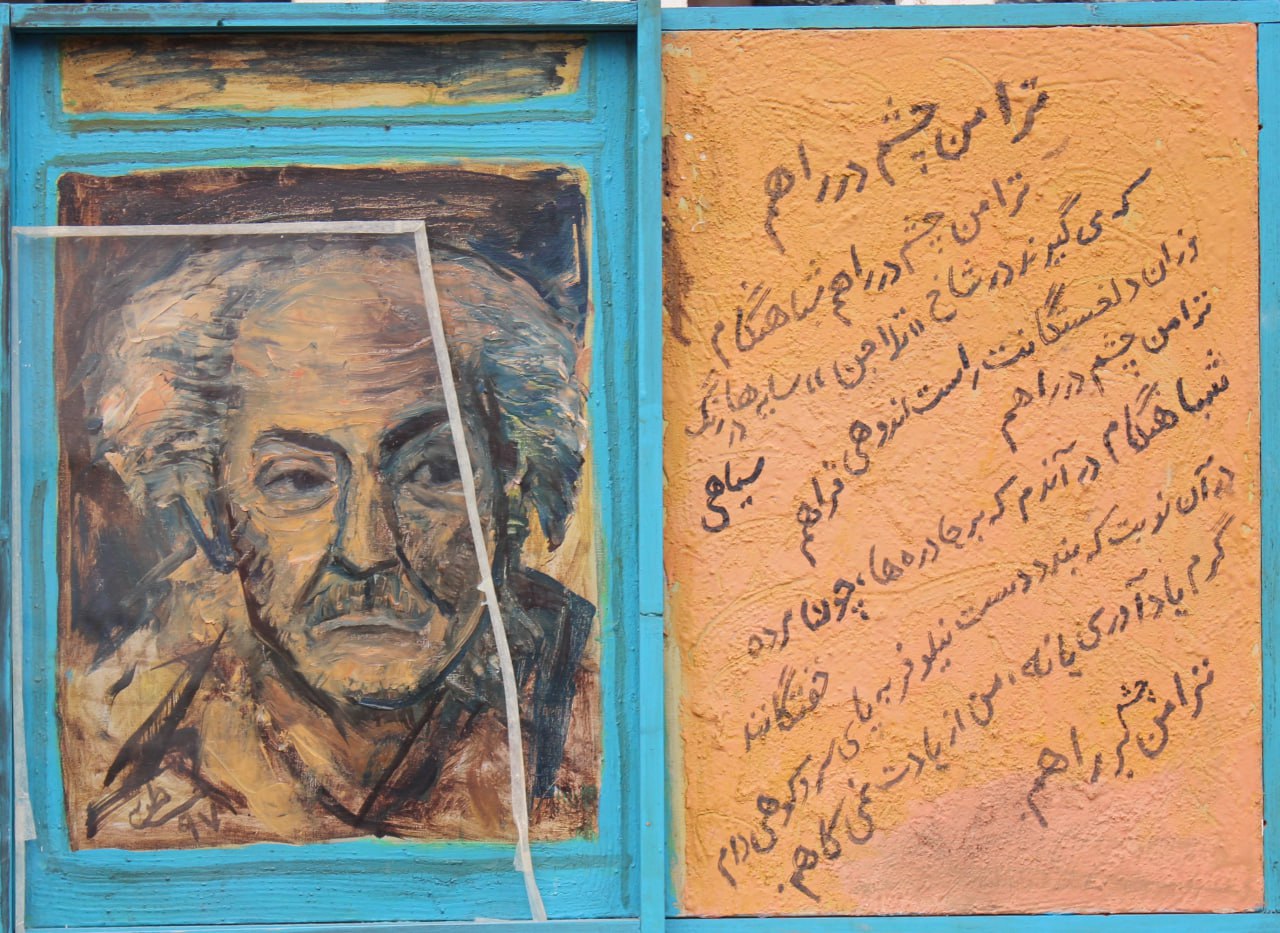 ترا من چشم در راهم
ترا من چشم در راهم شباهنگام
که می گیرند در شاخ «تلاجن» سایه‌ها رنگ
سیاهی
وزان دلخستگانت راست اندوهی فراهم
ترا من چشم در راهم
شباهنگام در آندم که بر جا دره‌ها، چون مرده
خفتگانند
در آن نوبت که بندد دست نیلوفر به پای سرو کوهی دام
گرم یاد آوری یا نه، من از یادت نمی کاهم
ترا من چشم در راهم.
۹۷